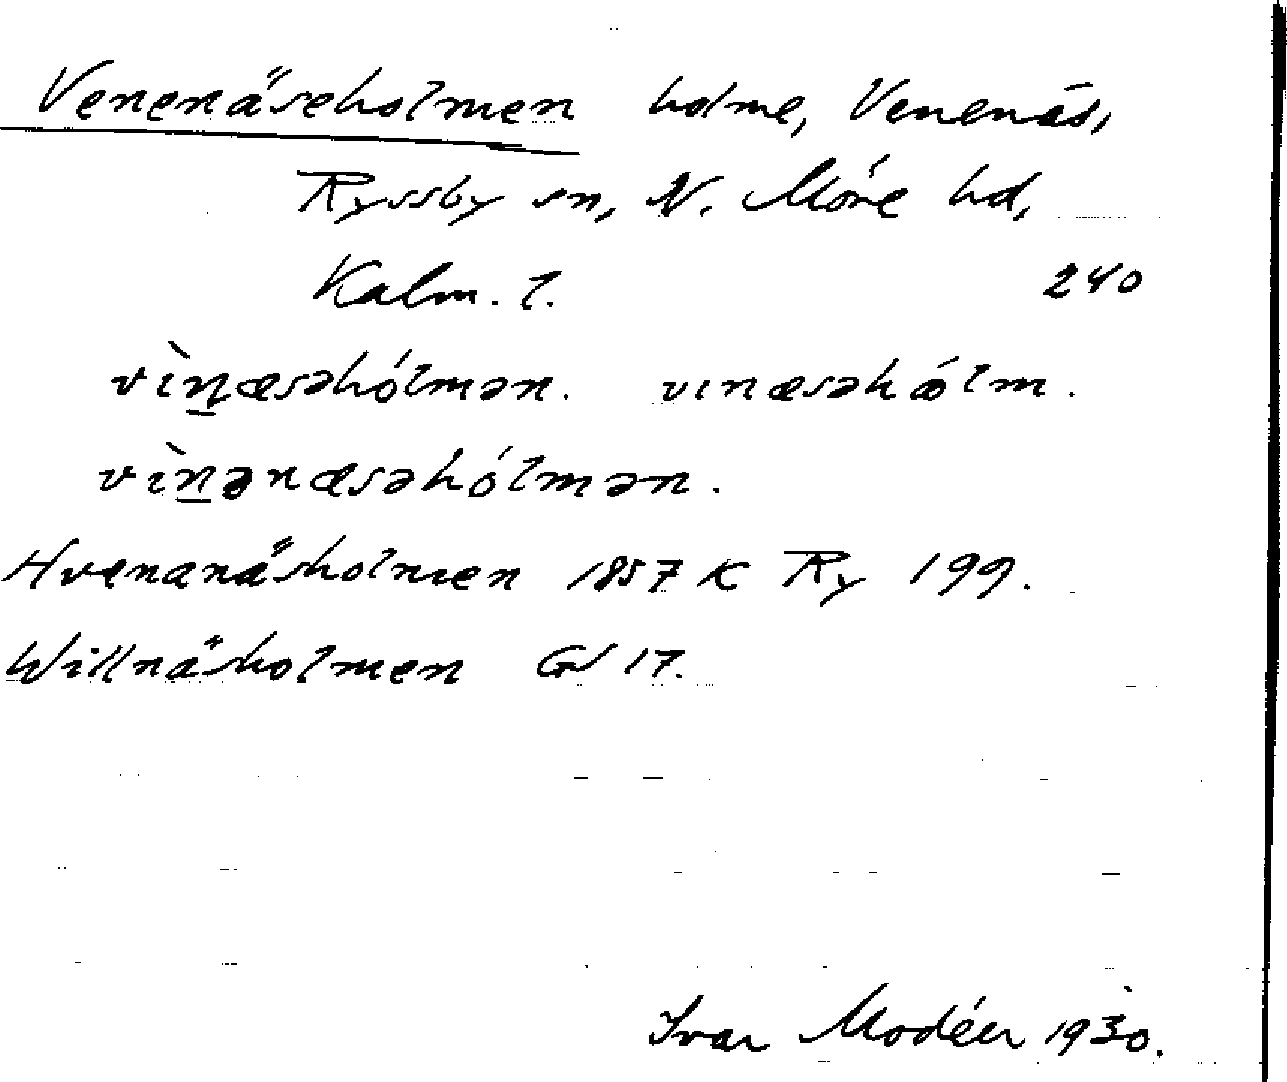 Venenäseholmen holme, Venenäs,
Ryssby sn, N. Möre hd,
Kalm. l. 240
vìn̲æsəhólmən. vınæsəhólm.
vìn̲ənæsəhólmən.
Hvenanäsholmen 1857 K Ry 199.
Willnäsholmen GV 17.
Ivar Modéer 1930.